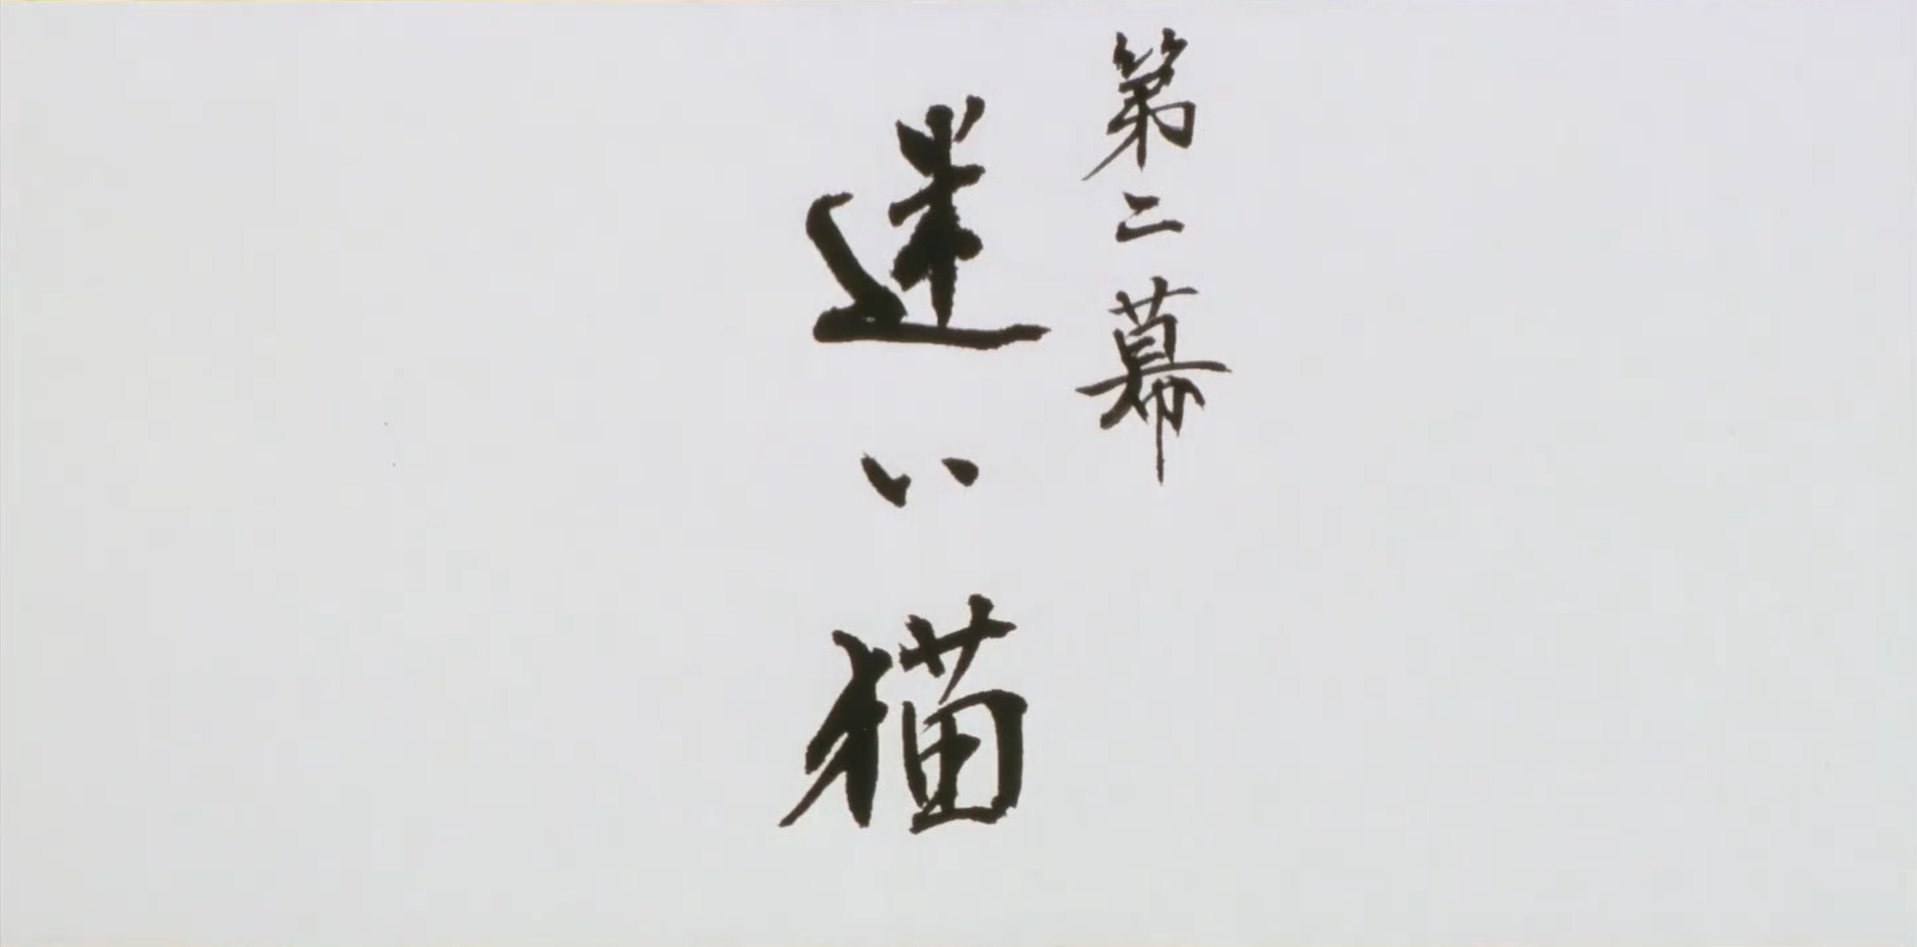 第二幕
迷い猫